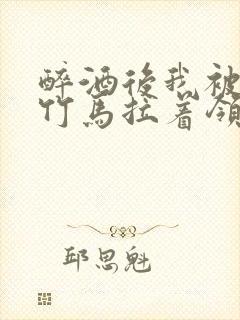 醉酒後我被
竹馬拉着領
邱思魁